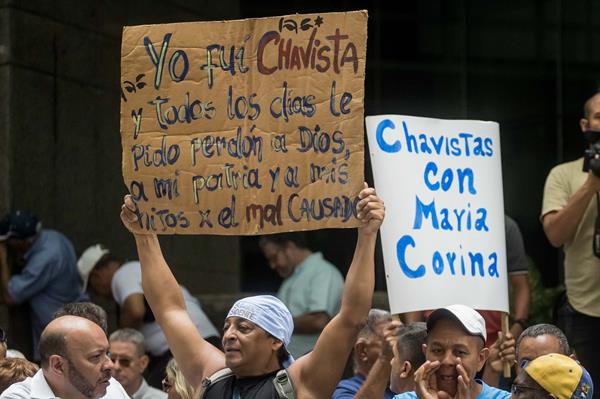 Yo fui CHAVISTA
y todos los días le
pido perdón a Dios,
a mi patria y a mis
hijitos x el mal CAUSADO
Chavistas
con
Maria
Corina